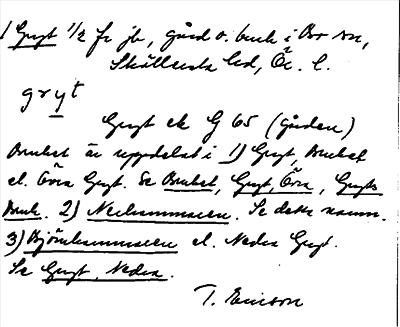 1 Gryt 1/2 fr jb, gård o. bruk i Bo sn,
Skyllersta hd, Ör. l.
gryt
Gryt ek G 65 (gården)
Bruket är uppdelat i 1) Gryt, Bruket
el. Övra Gryt. Se Bruket, Gryt, Övra, Gryts
Bruk. 2) Se detta namn.
3) Björnhammaren el. Nedra Gryt.
Se Gryt, Nedra.
T. Ericson